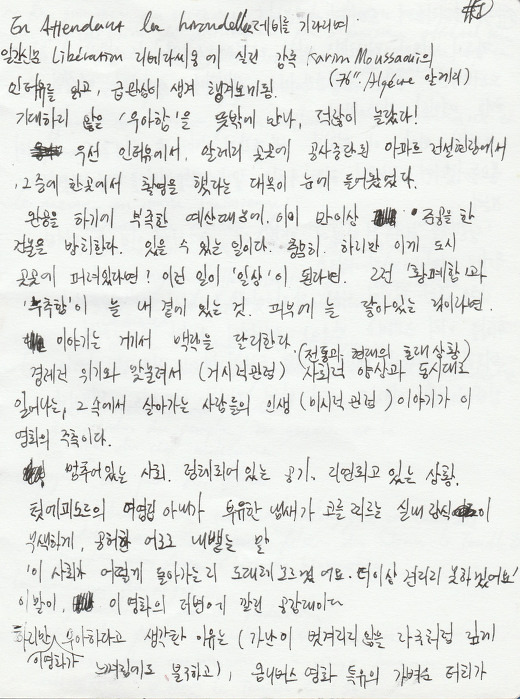 #1
En Attendant les hirondelles 제비를 기다리며
일간신문 Libération 리베라씨옹에 실린 감독 Karim Moussaoui의
(76", Algérie 알제리)
인터뷰를 읽고, 급관심이 생겨 챙겨보게됨.
기대하지 않은 '우아함'을 뜻밖에 만나, 적잖이 놀랐다!
우선 인터뷰에서, 알제리 곳곳에 공사중단된 아파트 건설현장에서
그중에 한곳에서 촬영을 했다는 대목이 눈에 들어왔었다.
완공을 하기에 부족한 예산때문에, 이미 반이상 준공을 한
건물을 방치한다. 있을 수 있는 일이다. 하지만 이게 도시
곳곳에 퍼져있다면? 이런 일이 '일상'이 된다면. 그런 '황폐함'과
'누추함'이 늘 내 곁에 있는 것. 피부에 늘 닿아있는 것이라면.
이야기는 게서 맥락을 달리한다.
(전통과 현대의 혼재상황)
경제적 위기와 맞물려서 (거시적관점) 사회적 양상과 동시대로
일어나는, 그 속에서 살아가는 사람들의 인생 (미시적관점) 이야기가 이
영화의 주축이다.
멈추어있는 사회. 정체되어있는 공기. 지연되고 있는 상황.
첫에피소드의 여영감 아내가 부유한 냄새가 코를 찌르는 실내장식이
무색하게, 공허한 어조로 내뱉는 말
'이 사회가 어떻게 돌아가는지 도대체 모르겠어요. 더이상 견디지 못하겠어요'
이 말이, 이 영화의 저변에 깔린 공감대이다
하지만 우아하다고 생각한 이유는 (가난이 벗겨지지 않을 자국처럼 깊게
이영화가 느껴짐에도 불구하고), 옴니버스 영화 특유의 가벼운 터치가